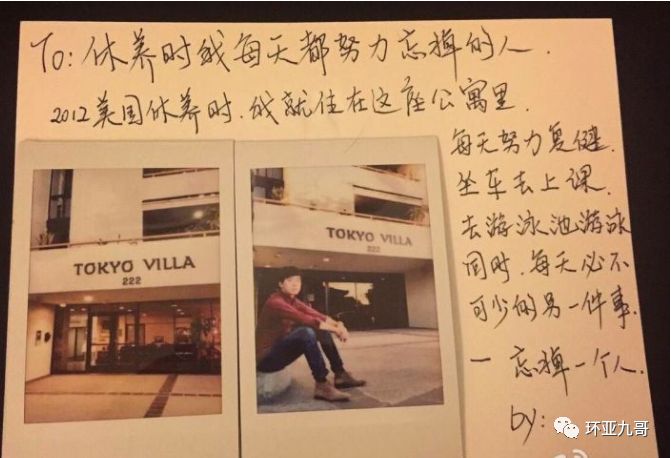 To: 休养时我每天都努力忘掉的人.
2012美国休养时.我就住在这座公寓里.
每天努力复健.
坐车去上课.
去游泳池游泳
同时.每天必不
可少的另一件事.
— 忘掉一个人.
by:
TOKYO VILLA
222
TOKYO VILLA
222
环亚九哥